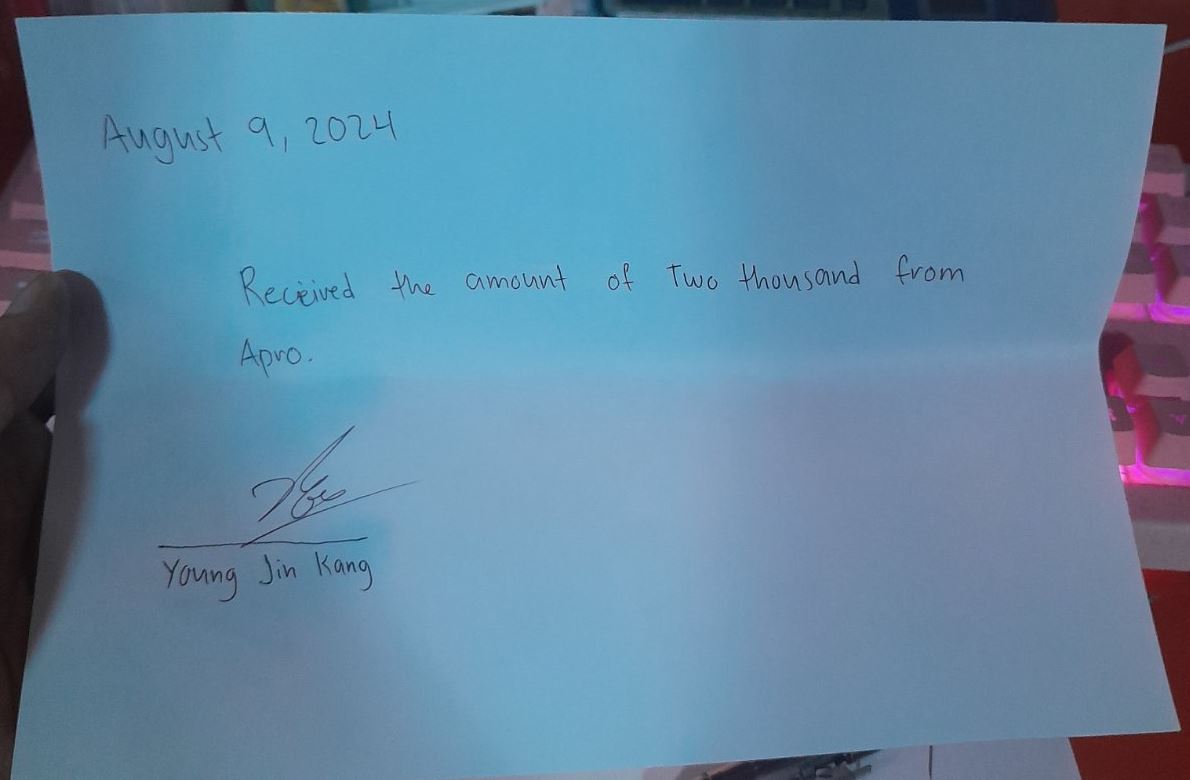 August 9, 2024
Received the amount of Two thousand from
Apro.
Young Jin Kang